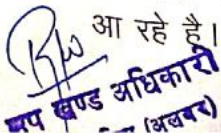 आ रहे है।
उप खण्ड अधिकारी
(अलवर)